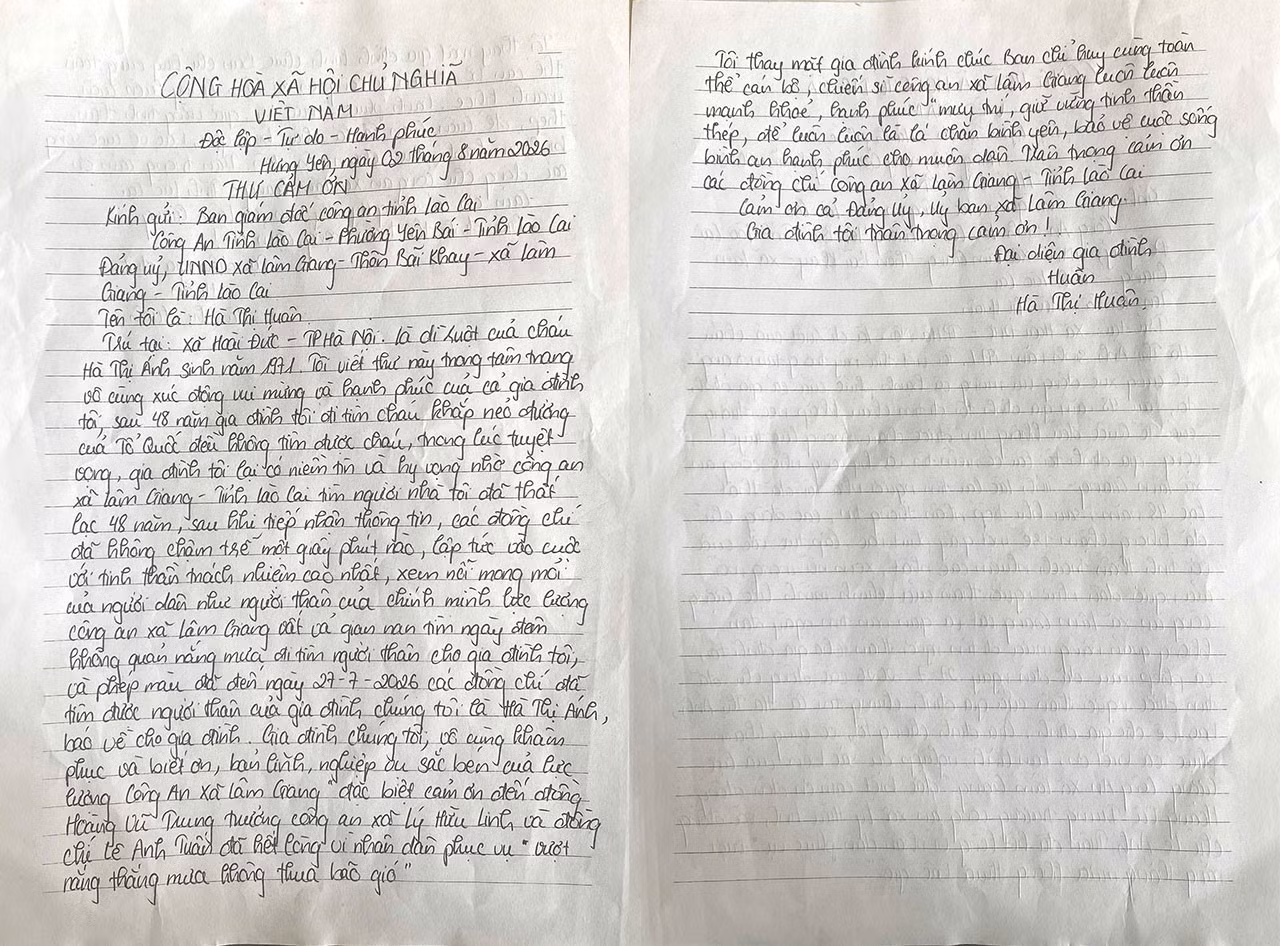 CỘNG HOÀ XÃ HỘI CHỦ NGHĨA
VIỆT NAM
Độc lập - Tự do - Hạnh phúc
Hưng Yên, ngày 02 tháng 8 năm 2026
THƯ CẢM ƠN
Kính gửi: Ban giám đốc công an tỉnh lào Cai
Công An Tỉnh lào Cai - Phường Yên Bái - Tỉnh lào Cai
Đảng uỷ, UNND xã lâm Giang - Thôn Bãi Khay - xã lâm
Giang - Tỉnh lào Cai
Tên tôi là: Hà Thị Huân
Trú tại: xã Hoài Đức - TP Hà Nội. là dì ruột của cháu
Hà Thị Ánh sinh năm 1971. Tôi viết thư này trong tâm trạng
vô cùng xúc động vui mừng và hạnh phúc của cả gia đình
tôi, sau 48 năm gia đình tôi đi tìm cháu khắp nẻo đường
của Tổ Quốc đều không tìm được cháu, trong lúc tuyệt
vọng, gia đình tôi lại có niềm tin và hy vọng nhờ công an
xã lâm Giang - Tỉnh lào Cai tìm người nhà tôi đã thất
lạc 48 năm, sau khi tiếp nhận thông tin, các đồng chí
đã không chậm trễ một giây phút nào, lập tức vào cuộc
với tinh thần trách nhiệm cao nhất, xem nỗi mong mỏi
của người dân như người thân của chính mình lực lượng
công an xã lâm Giang vất vả gian nan tìm ngày đêm
không quản nắng mưa đi tìm người thân cho gia đình tôi,
và phép màu đã đến ngày 27-7-2026 các đồng chí đã
tìm được người thân của gia đình chúng tôi là Hà Thị Ánh,
báo về cho gia đình. Gia đình chúng tôi, vô cùng khâm
phục và biết ơn, bản lĩnh, nghiệp vụ sắc bén của lực
lượng Công An xã lâm Giang "đặc biệt cảm ơn đến đồng
Hoàng Vũ Trung trưởng công an xã Lý Hữu Linh và đồng
chí lê Anh Tuấn đã hết lòng vì nhân dân phục vụ "vượt
nắng thắng mưa không thua bão gió"
Tôi thay mặt gia đình kính chúc Ban chỉ huy cùng toàn
thể cán bộ, chiến sĩ công an xã lâm Giang luôn luôn
mạnh khoẻ, hạnh phúc "mưu trí, giữ vững tinh thần
thép, để luôn luôn là lá chắn bình yên, bảo vệ cuộc sống
bình an hạnh phúc cho muôn dân Trân trọng cảm ơn
các đồng chí công an xã lâm Giang - Tỉnh lào Cai
Cảm ơn cả Đảng Uỷ, Uỷ ban xã lâm Giang.
Gia đình tôi trân trọng cảm ơn!
Đại diện gia đình
Huân
Hà Thị Huân